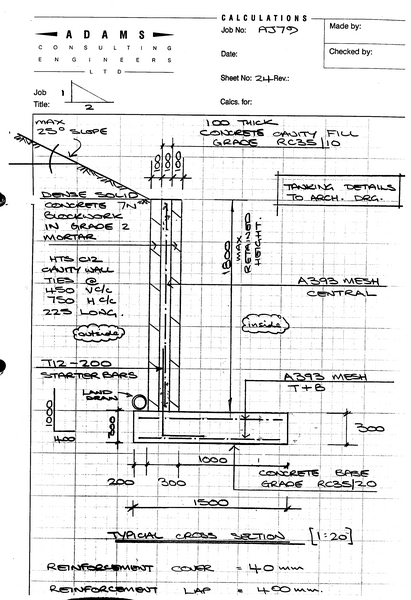 CALCULATIONS
ADAMS
CONSULTING
ENGINEERS
LTD
Job No: AJ79
Made by:
Date:
Checked by:
Sheet No: 24 Rev.:
Job
Title:
1
2
Calcs. for:
MAX
25° SLOPE
100 THICK
CONCRETE CAVITY FILL
GRADE RC35/10
100 100 100
DENSE SOLID
CONCRETE 7N
BLOCKWORK
IN GRADE 2
MORTAR
TANKING DETAILS
TO ARCH. DRG.
1800
MAX
RETAINED
HEIGHT.
HTS C12
CAVITY WALL
TIES @
450 V c/c
750 H c/c
225 LONG.
A393 MESH
CENTRAL
outside
inside
T12-200
STARTER BARS
A393 MESH
T+B
LAND
DRAIN
1000
400
300
300
1000
200
300
CONCRETE BASE
GRADE RC35/20
1500
TYPICAL CROSS SECTION [1:20]
REINFORCEMENT COVER = 40mm
REINFORCEMENT LAP = 400mm.